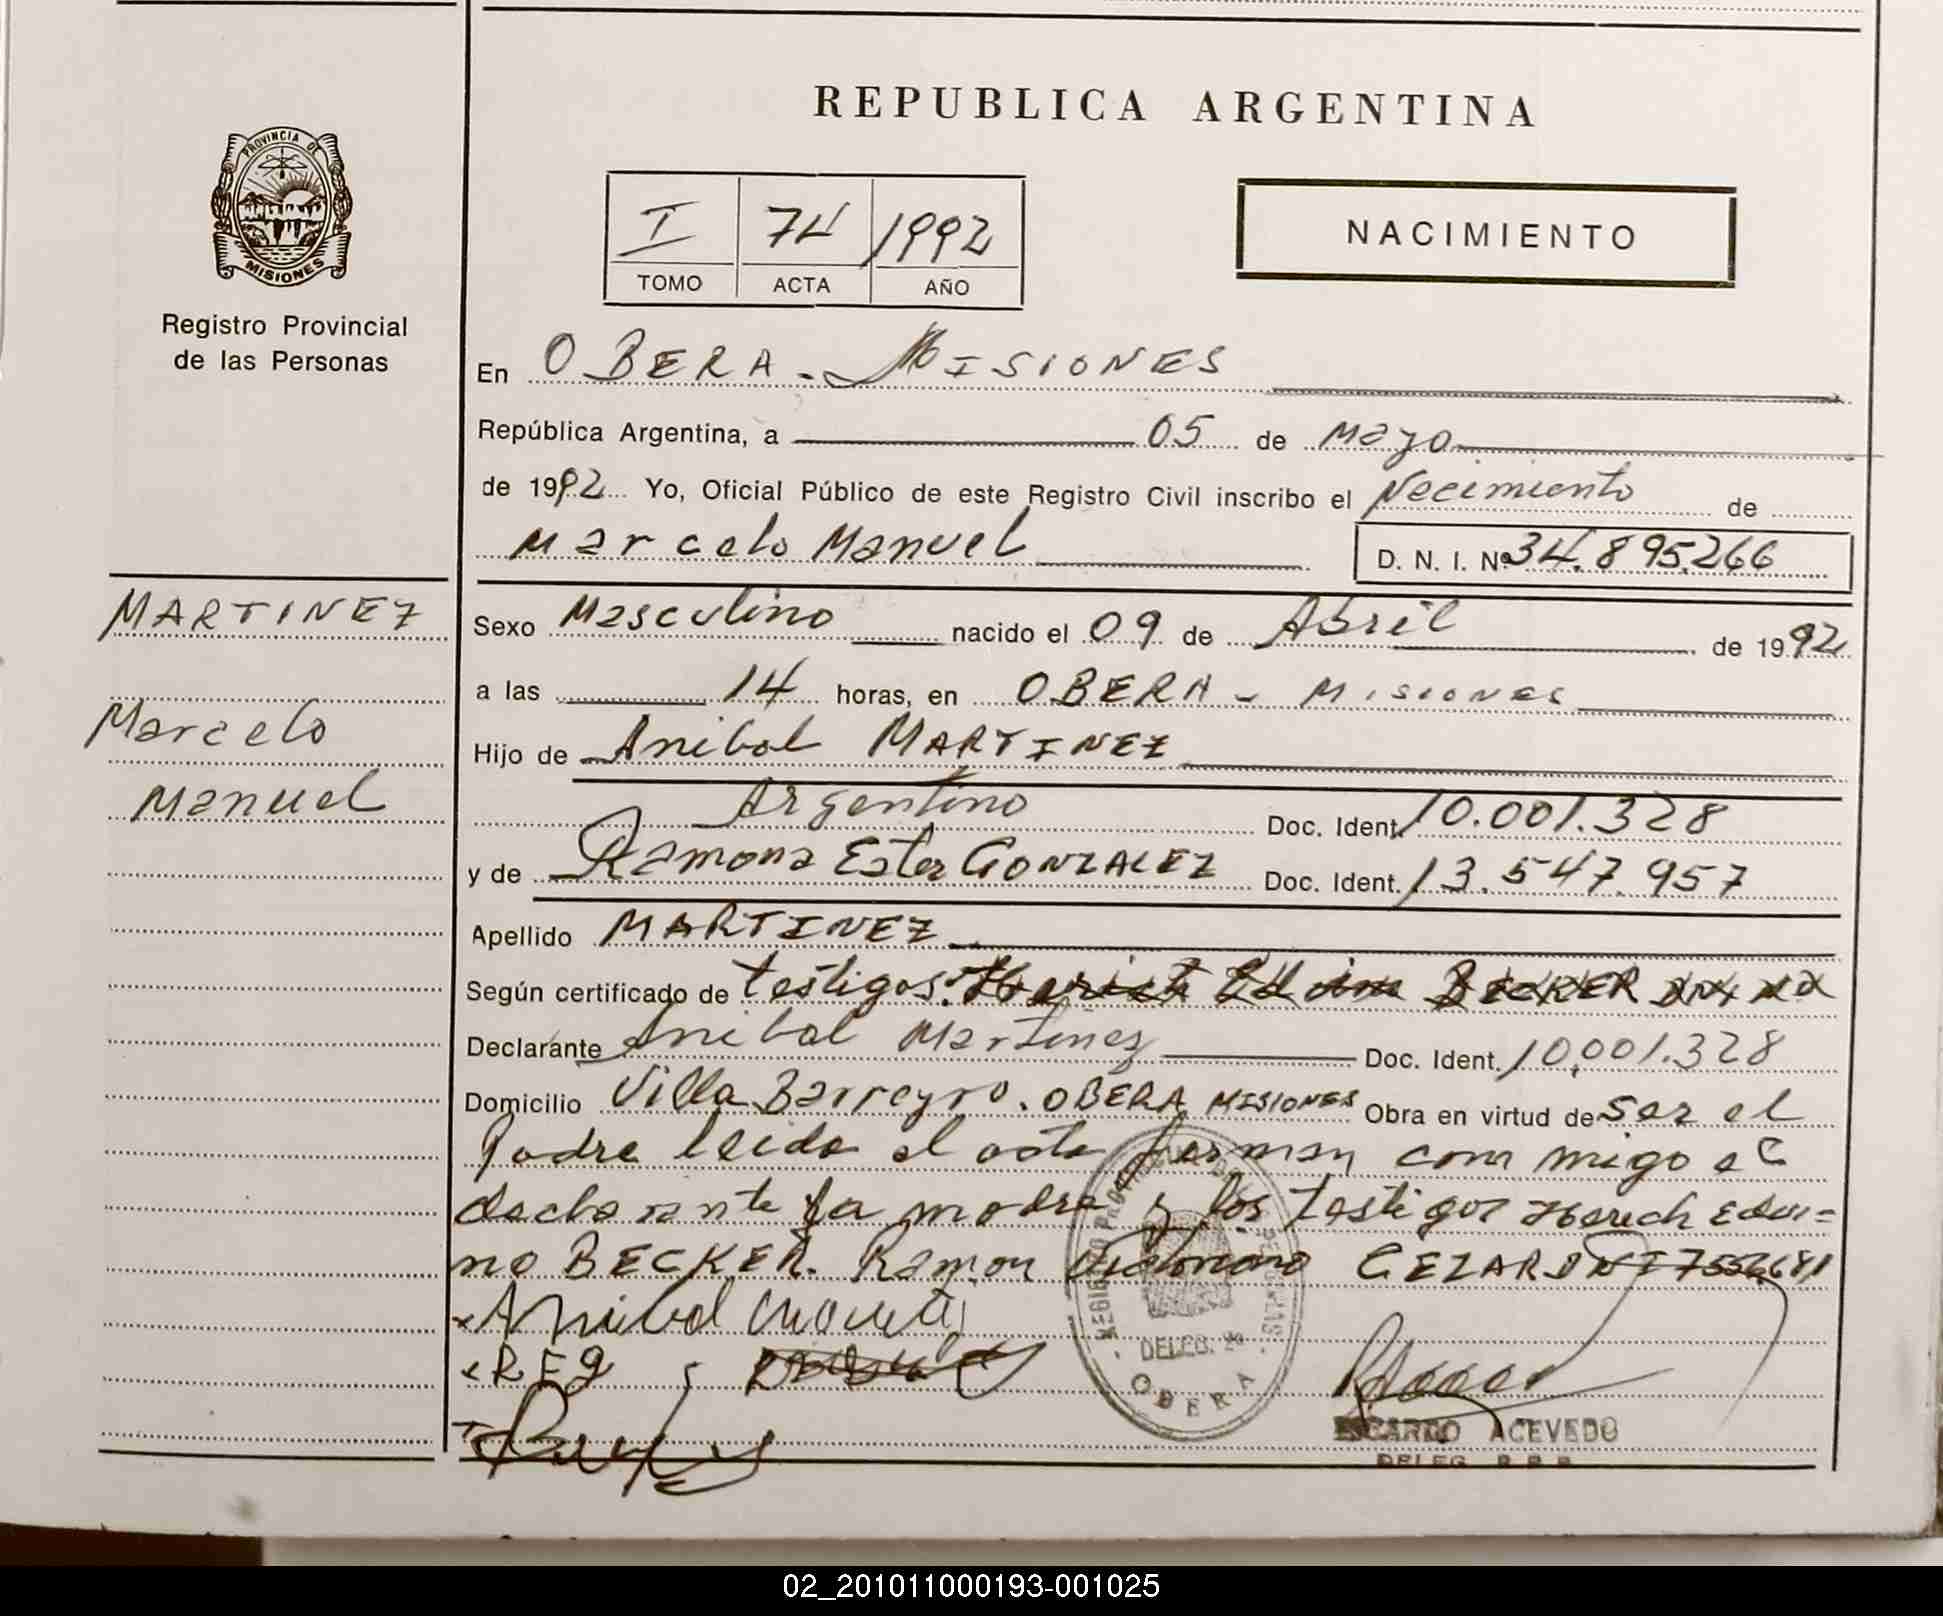 REPUBLICA ARGENTINA
PROVINCIA DE
MISIONES
Registro Provincial
de las Personas
I 74 1992
TOMO ACTA AÑO
NACIMIENTO
En OBERA - MISIONES
República Argentina, a 05 de Mayo
de 1992 Yo, Oficial Público de este Registro Civil inscribo el Nacimiento de
Marcelo Manuel D. N. I. Nº 34.895.266
MARTINEZ
Marcelo
Manuel
Sexo Masculino nacido el 09 de Abril de 1992
a las 14 horas, en OBERA - MISIONES
Hijo de Anibal MARTINEZ
Argentino Doc. Ident. 10.001.328
y de Ramona Ester GONZALEZ Doc. Ident. 13.547.957
Apellido MARTINEZ
Según certificado de testigos. BECKER
Declarante Anibal Martinez Doc. Ident. 10.001.328
Domicilio Villa Barreyro. OBERA MISIONES Obra en virtud de ser el
Padre leida el acta firman con migo el
declarante la madre y los testigos Harich Edui=
no BECKER. Ramon CEZAR DNI
Anibal
REG
DELEG.
OBERA
RICARDO ACEVEDO
DELEG. R.P.P.
02_201011000193-001025